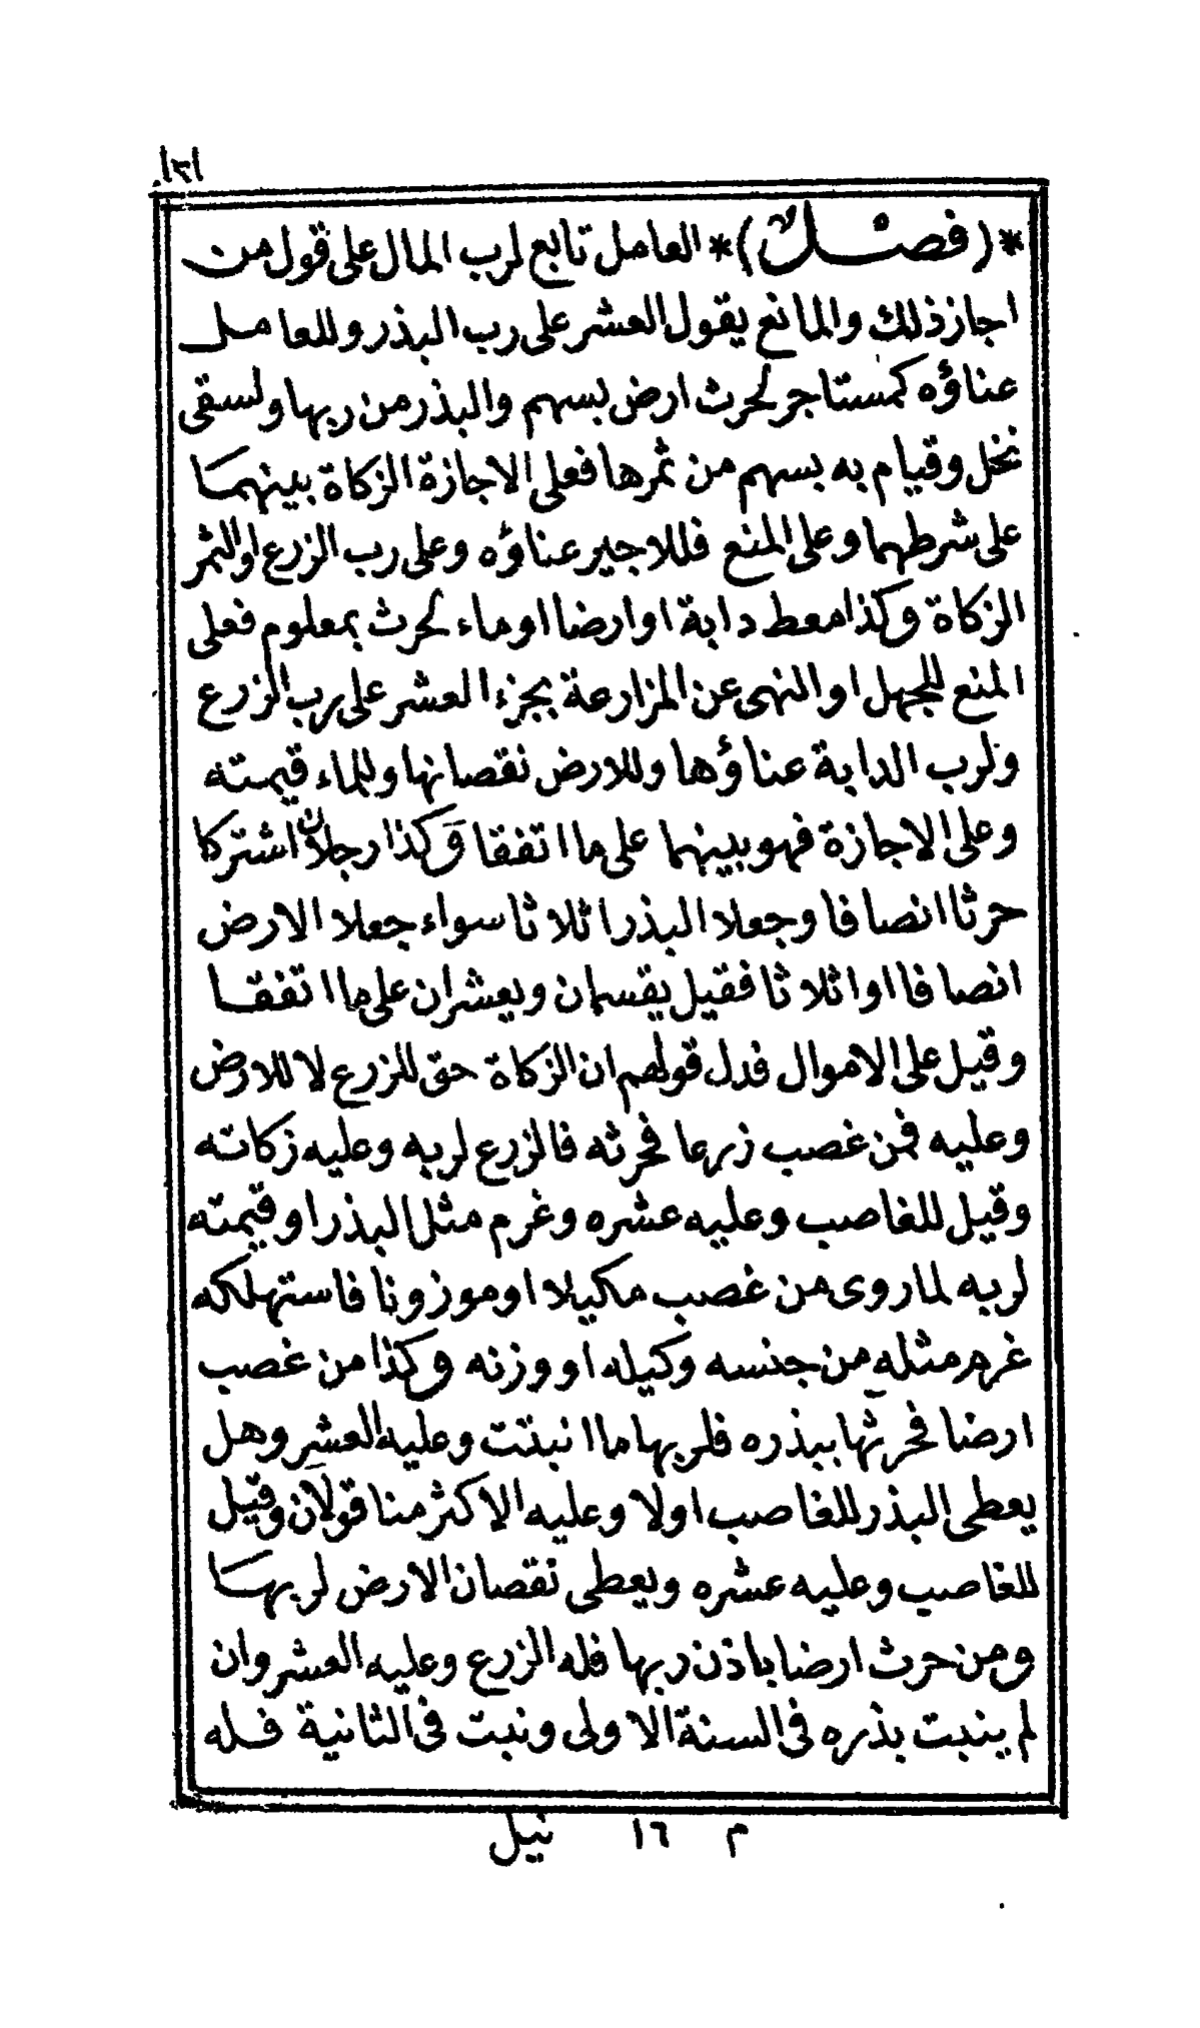 ١٢١
*(فصل)* العامل تابع لرب المال على قول من
اجاز ذلك والمانع يقول العشر على رب البذر وللعامل
عناؤه كمستاجر لحرث ارض بسهم والبذر من ربها ولسقى
نخل وقيام به بسهم من ثمرها فعلى الاجازة الزكاة بينهما
على شرطهما وعلى المنع فللاجير عناؤه وعلى رب الزرع او الثمر
الزكاة وكذا معط دابة او ارضا او ماء لحرث بمعلوم فعلى
المنع للجهل او النهى عن المزارعة بجزء العشر على رب الزرع
ولرب الدابة عناؤها وللارض نقصانها وللماء قيمته
وعلى الاجازة فهو بينهما على ما اتفقا وكذا رجلان اشتركا
حرثا انصافا وجعلا البذر اثلاثا سواء جعلا الارض
انصافا او اثلاثا فقيل يقسمان ويعشران على ما اتفقا
وقيل على الاموال فدل قولهم ان الزكاة حق للزرع لا للارض
وعليه فمن غصب زرعا فحرثه فالزرع لربه وعليه زكاته
وقيل للغاصب وعليه عشره وغرم مثل البذر او قيمته
لربه لما روى من غصب مكيلا او موزونا فاستهلكه
غرم مثله من جنسه وكيله او وزنه وكذا من غصب
ارضا فحرثها ببذره فلربها ما انبتت وعليه العشر وهل
يعطى البذر للغاصب اولا وعليه الاكثر منا قولان وقيل
للغاصب وعليه عشره ويعطى نقصان الارض لربها
ومن حرث ارضا باذن ربها فله الزرع وعليه العشر وان
لم ينبت بذره فى السنة الاولى ونبت فى الثانية فله
م ١٦ نيل